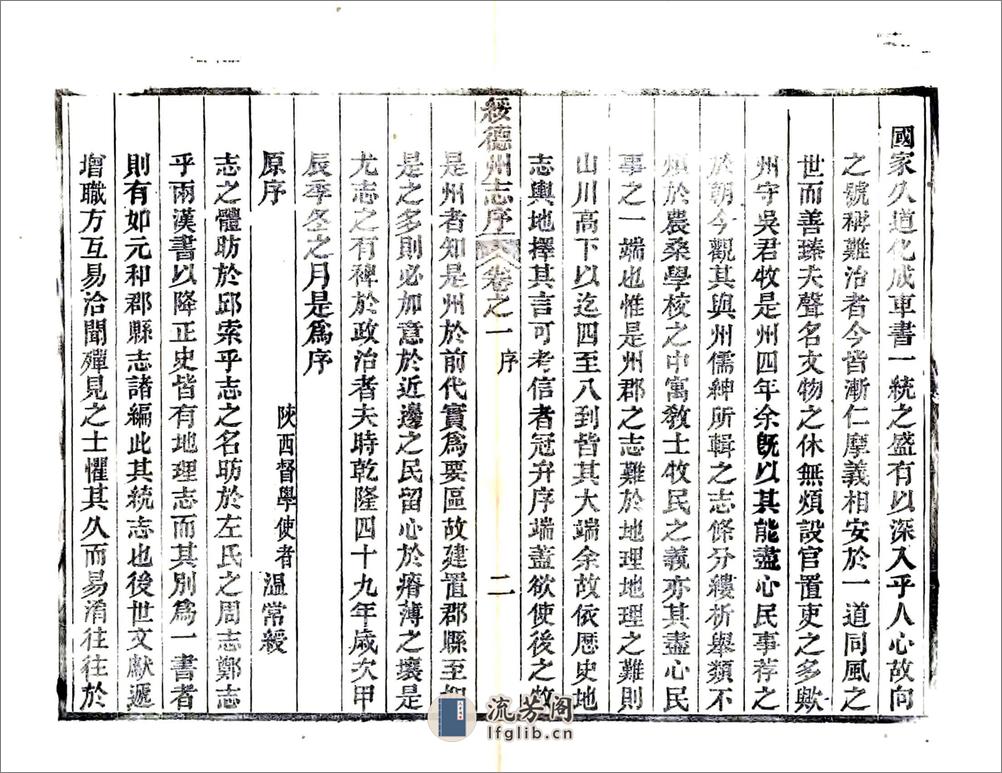 國家久道化成車書一統之盛有以深入乎人心故向
之號稱難治者今皆漸仁摩義相安於一道同風之
世而善臻夫聲名文物之休無煩設官置吏之多歟
州守吳君牧是州四年余旣以其能盡心民事荐之
於朝今觀其與州儒紳所輯之志條分縷析舉類不
煩於農桑學校之中寓敎士牧民之義亦其盡心民
事之一端也惟是州郡之志難於地理地理之難則
山川高下以迄四至八到皆其大端余故依歷史地
志輿地擇其言可考信者冠弁序端蓋欲使後之牧
綏德州志序 卷之一 序 二
是州者知是州於前代實爲要區故建置郡縣至如
是之多則必加意於近邊之民留心於瘠薄之壤是
尤志之有裨於政治者夫時乾隆四十九年歲次甲
辰季冬之月是爲序
原序
陝西督學使者溫常綬
志之體昉於邱索乎志之名昉於左氏之周志鄭志
乎兩漢書以降正史皆有地理志而其別爲一書者
則有如元和郡縣志諸編此其統志也後世文獻遞
增職方互易洽聞殫見之士懼其久而易淆往往於
流芳阁
lfglib.cn